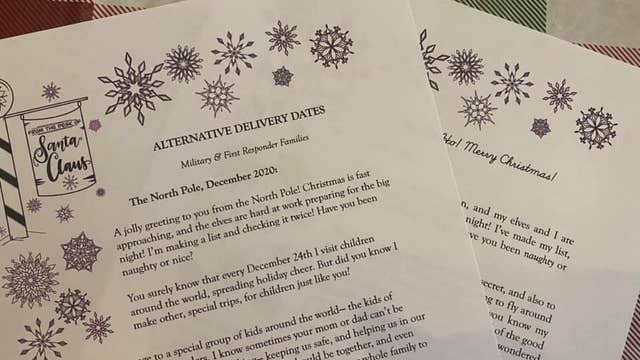 FROM THE DESK OF
Santa
Claus
ALTERNATIVE DELIVERY DATES
Military & First Responder Families
The North Pole, December 2020:
A jolly greeting to you from the North Pole! Christmas is fast
approaching, and the elves are hard at work preparing for the big
night! I'm making a list and checking it twice! Have you been
naughty or nice?
You surely know that every December 24th I visit children
around the world, spreading holiday cheer. But did you know I
make other, special trips, for children just like you?
to a special group of kids around the world– the kids of
I know sometimes your mom or dad can't be
keeping us safe, and helping us in our
be together, and even
whole family to
Ho! Merry Christmas!
and my elves and I are
night! I've made my list,
you been naughty or
secret, and also to
to fly around
you know my
of the good
wonderful